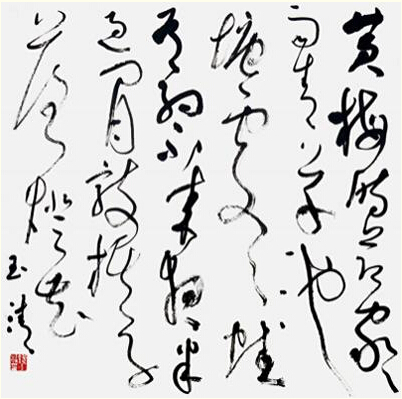 黄梅時節家家
雨青草池
塘處處蛙
有約不來夜半
過閒敲棋子
落燈花
玉清